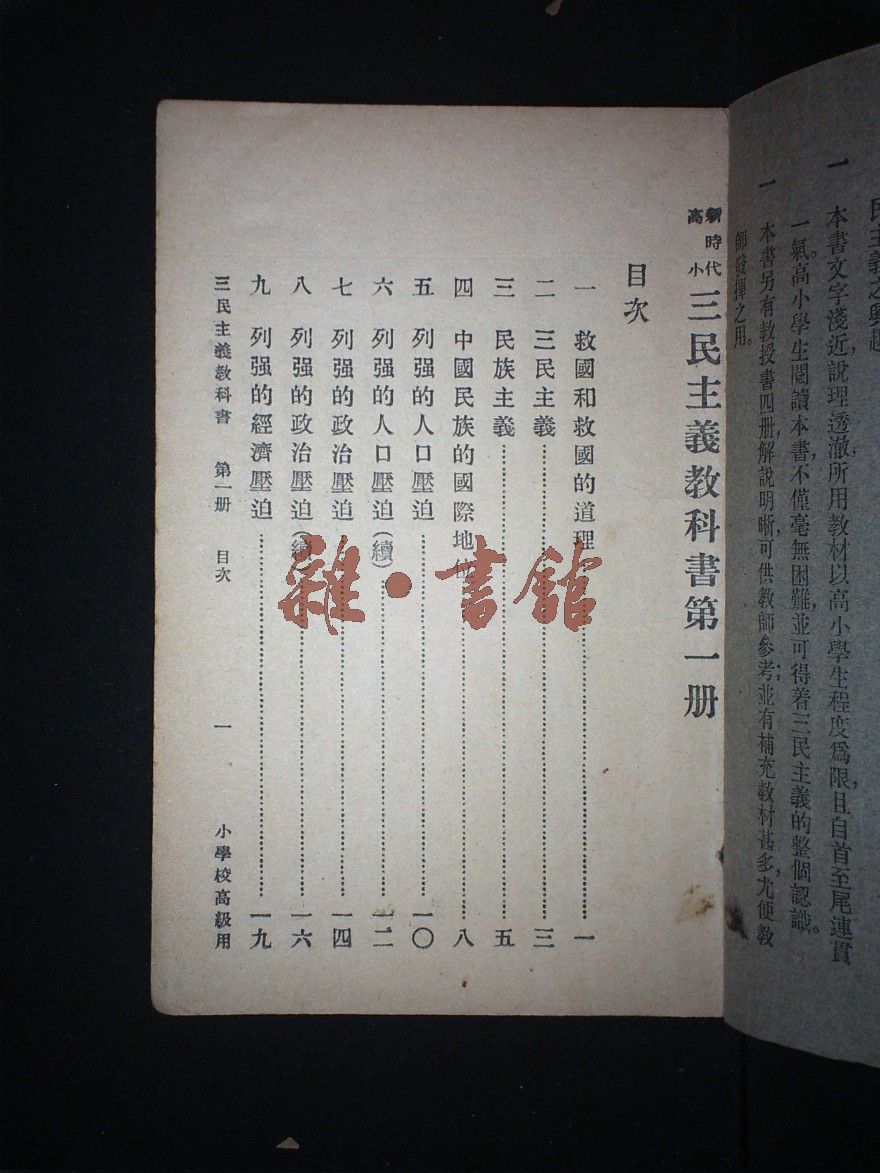 民主義之興趣
一 本書文字淺近，說理透澈，所用教材以高小學生程度爲限，且自首至尾連貫
一氣。高小學生閱讀本書，不僅毫無困難，並可得着三民主義的整個認識。
一 本書另有教授書四册，解說明晰，可供教師參考；並有補充教材甚多，尤便教
師發揮之用。
新時代高小 三民主義教科書第一册
目次
一 救國和救國的道理……一
二 三民主義……三
三 民族主義……五
四 中國民族的國際地位……八
五 列强的人口壓迫……一〇
六 列强的人口壓迫(續)……一二
七 列强的政治壓迫……一四
八 列强的政治壓迫(續)……一六
九 列强的經濟壓迫……一九
三民主義教科書 第一册 目次 一 小學校高級用
雜·書館